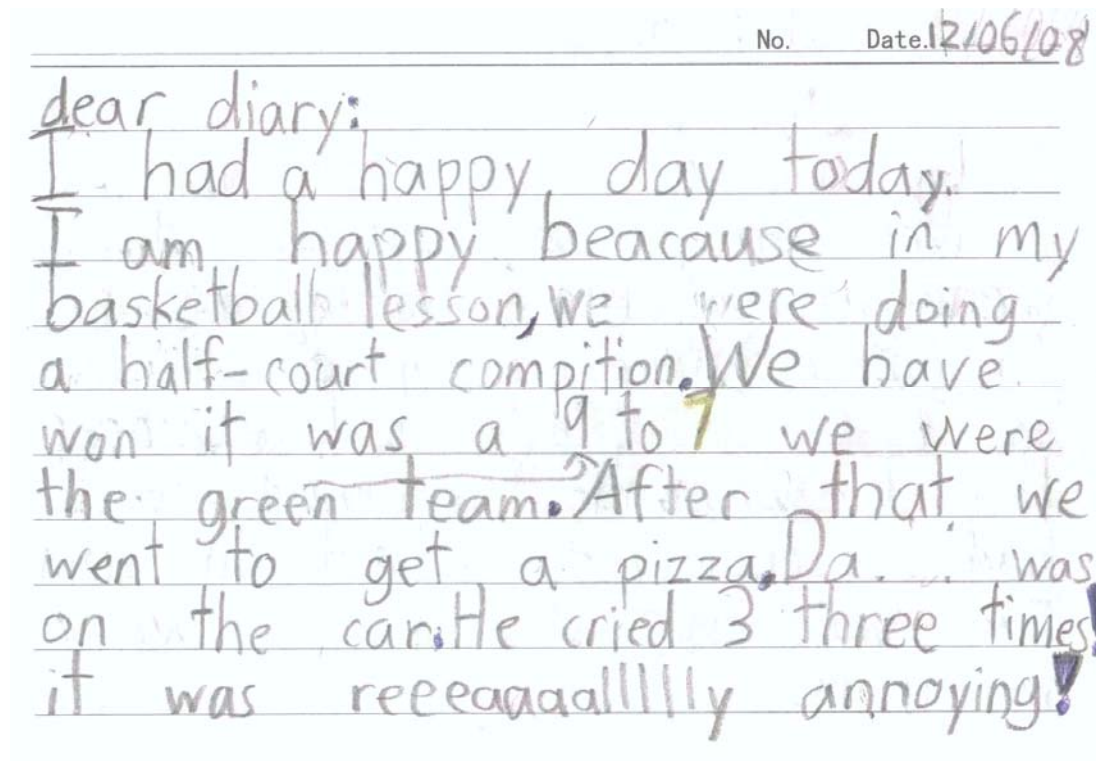 No. Date.12/06/08
dear diary:
I had a happy day today.
I am happy beacause in my
basketball lesson,we were doing
a half-court compition.We have
won it was a 9 to 7 we were
the green team.After that we
went to get a pizza.Da. .. was
on the car.He cried 3 three times!
it was reeeaaaallllly annoying!